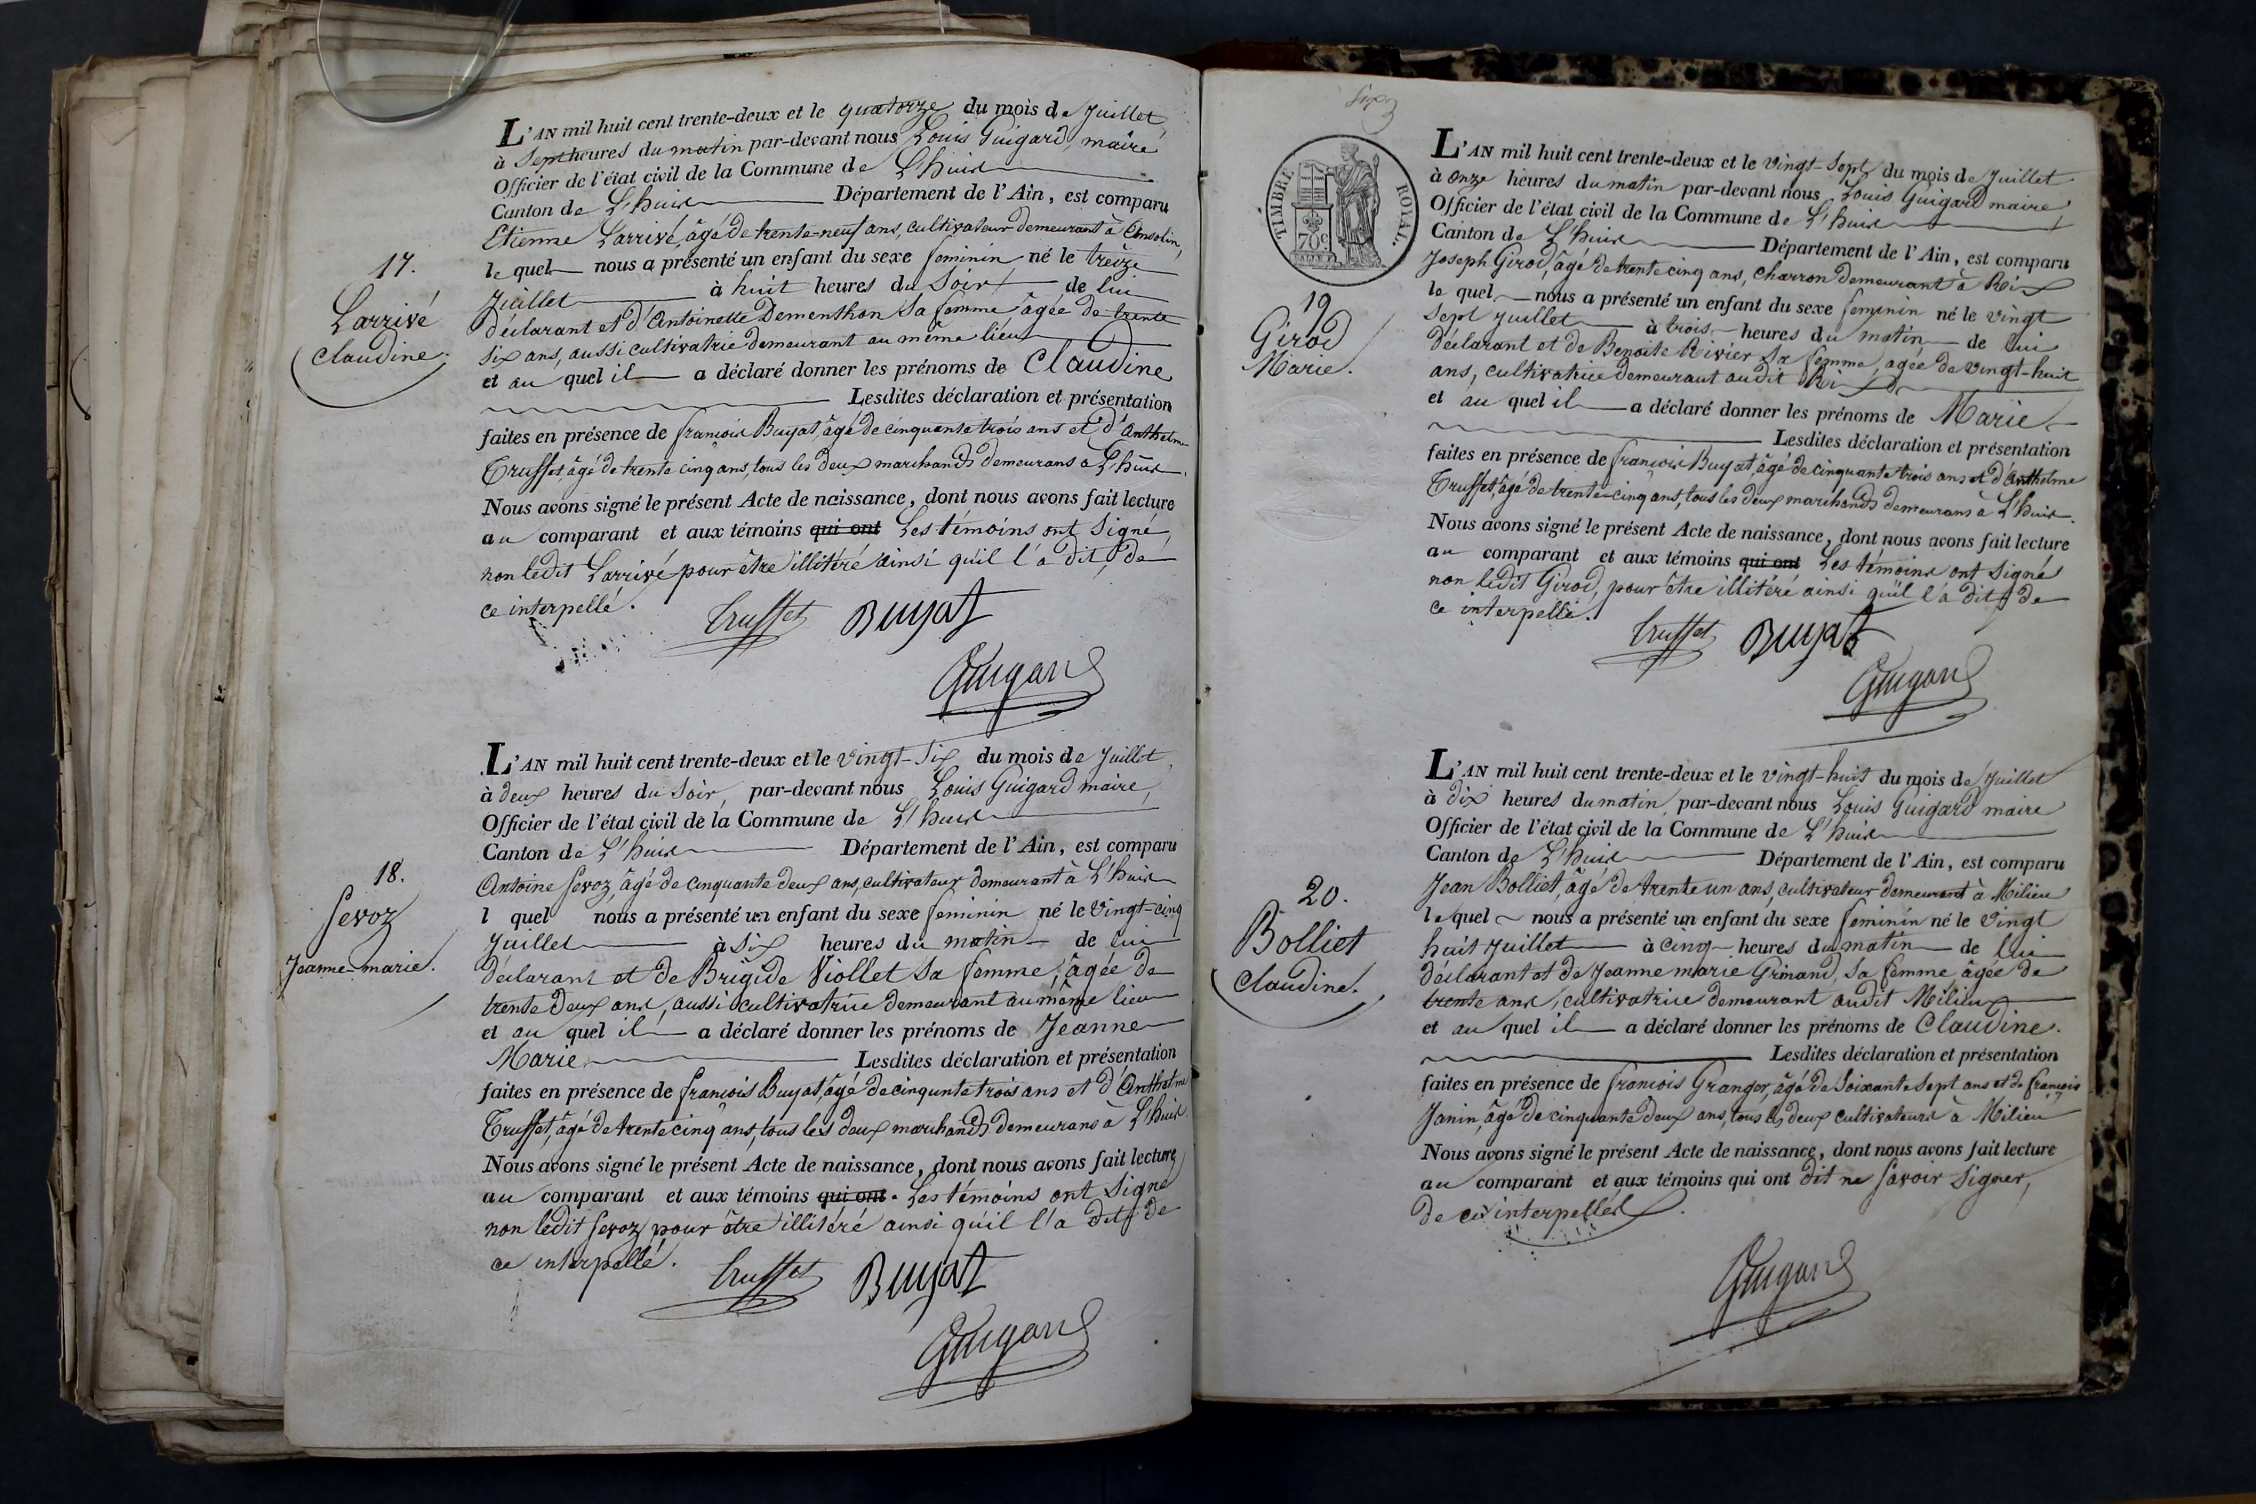 L'AN mil huit cent trente-deux et le quatorze du mois de Juillet,
à Sept heures du matin par-devant nous Louis Guigard, maire
Officier de l'état civil de la Commune de L'huis
Canton de L'huis Département de l'Ain, est comparu
Etienne Larrivé, âgé de trente-neuf ans, cultivateur demeurant à Ansolin,
le quel nous a présenté un enfant du sexe feminin né le treize
Juillet à huit heures du Soir de lui
déclarant et d'Antoinette Dementhon Sa femme âgée de trente
six ans, aussi cultivatrie demeurant au même lieu
et au quel il a déclaré donner les prénoms de Claudine
Lesdites déclaration et présentation
faites en présence de françois Buyat, âgé de cinquante trois ans et d'Anthelme
Truffet, âgé de trente cinq ans, tous les deux marchands demeurans à L'huis.
Nous avons signé le présent Acte de naissance, dont nous avons fait lecture
au comparant et aux témoins qui ont Les témoins ont Signé,
non ledit Larrivé pour être illitéré ainsi qu'il l'a dit, de
ce interpellé.
Truffet Buyat
Guigard
17.
Larrivé
Claudine.
L'AN mil huit cent trente-deux et le vingt-Six du mois de Juillet,
à deux heures du Soir, par-devant nous Louis Guigard maire,
Officier de l'état civil de la Commune de L'huis
Canton de L'huis Département de l'Ain, est comparu
Antoine Sevoz, âgé de cinquante deux ans, cultivateur demeurant à L'huis
l quel nous a présenté un enfant du sexe feminin né le Vingt-cinq
Juillet à Six heures du matin de lui
déclarant et de Brigide Viollet Sa femme, âgée de
trente deux ans, aussi cultivatrice demeurant au même lieu
et au quel il a déclaré donner les prénoms de Jeanne
Marie Lesdites déclaration et présentation
faites en présence de françois Buyat, âgé de cinqunte trois ans et d'Anthelme
Truffet, âgé de trente cinq ans, tous les deux marchands demeurans à L'huis.
Nous avons signé le présent Acte de naissance, dont nous avons fait lecture
au comparant et aux témoins qui ont. Les témoins ont Signé
non ledit Sevoz pour être illitéré ainsi qu'il l'a dit, de
ce interpellé.
Truffet Buyat
Guigard
18.
Sevoz
Jeanne-marie.
TIMBRE ROYAL.
70c
L'AN mil huit cent trente-deux et le vingt-Sept du mois de Juillet
à onze heures du matin par-devant nous Louis Guigard maire
Officier de l'état civil de la Commune de L'huis
Canton de L'huis Département de l'Ain, est comparu
Joseph Girod, âgé de trente cinq ans, charron demeurant à Rix
le quel nous a présenté un enfant du sexe feminin né le vingt
Sept Juillet à trois heures du matin de lui
déclarant et de Benoite Rivier Sa femme, agée de vingt-huit
ans, cultivatrice demeurant audit Rix
et au quel il a déclaré donner les prénoms de Marie
Lesdites déclaration et présentation
faites en présence de françois Buyat, âgé de cinquante trois ans et d'Anthelme
Truffet, âgé de trente-cinq ans, tous les deux marchands demeurans à L'huis.
Nous avons signé le présent Acte de naissance, dont nous avons fait lecture
au comparant et aux témoins qui ont Les témoins ont Signé
non ledit Girod, pour être illitéré ainsi qu'il l'a dit, de
ce interpellé.
Truffet Buyat
Guigard
19
Girod
Marie.
L'AN mil huit cent trente-deux et le vingt-huit du mois de Juillet
à dix heures du matin, par-devant nous Louis Guigard maire
Officier de l'état civil de la Commune de L'huis
Canton de L'huis Département de l'Ain, est comparu
Jean Bolliet, âgé de trente un ans, cultivateur demeurant à Milieu
le quel nous a présenté un enfant du sexe feminin né le Vingt
huit Juillet à cinq heures du matin de lui
déclarant et de Jeanne marie Grinand, Sa femme âgée de
trente ans, cultivatrice demeurant audit Milieu
et au quel il a déclaré donner les prénoms de Claudine.
Lesdites déclaration et présentation
faites en présence de françois Granger, âgé de Soixante Sept ans et de françois
Janin, âgé de cinquante deux ans, tous les deux cultivateurs à Milieu
Nous avons signé le présent Acte de naissance, dont nous avons fait lecture
au comparant et aux témoins qui ont dit ne Savoir Signer,
de ce interpellés.
Guigard
20.
Bolliet
Claudine.